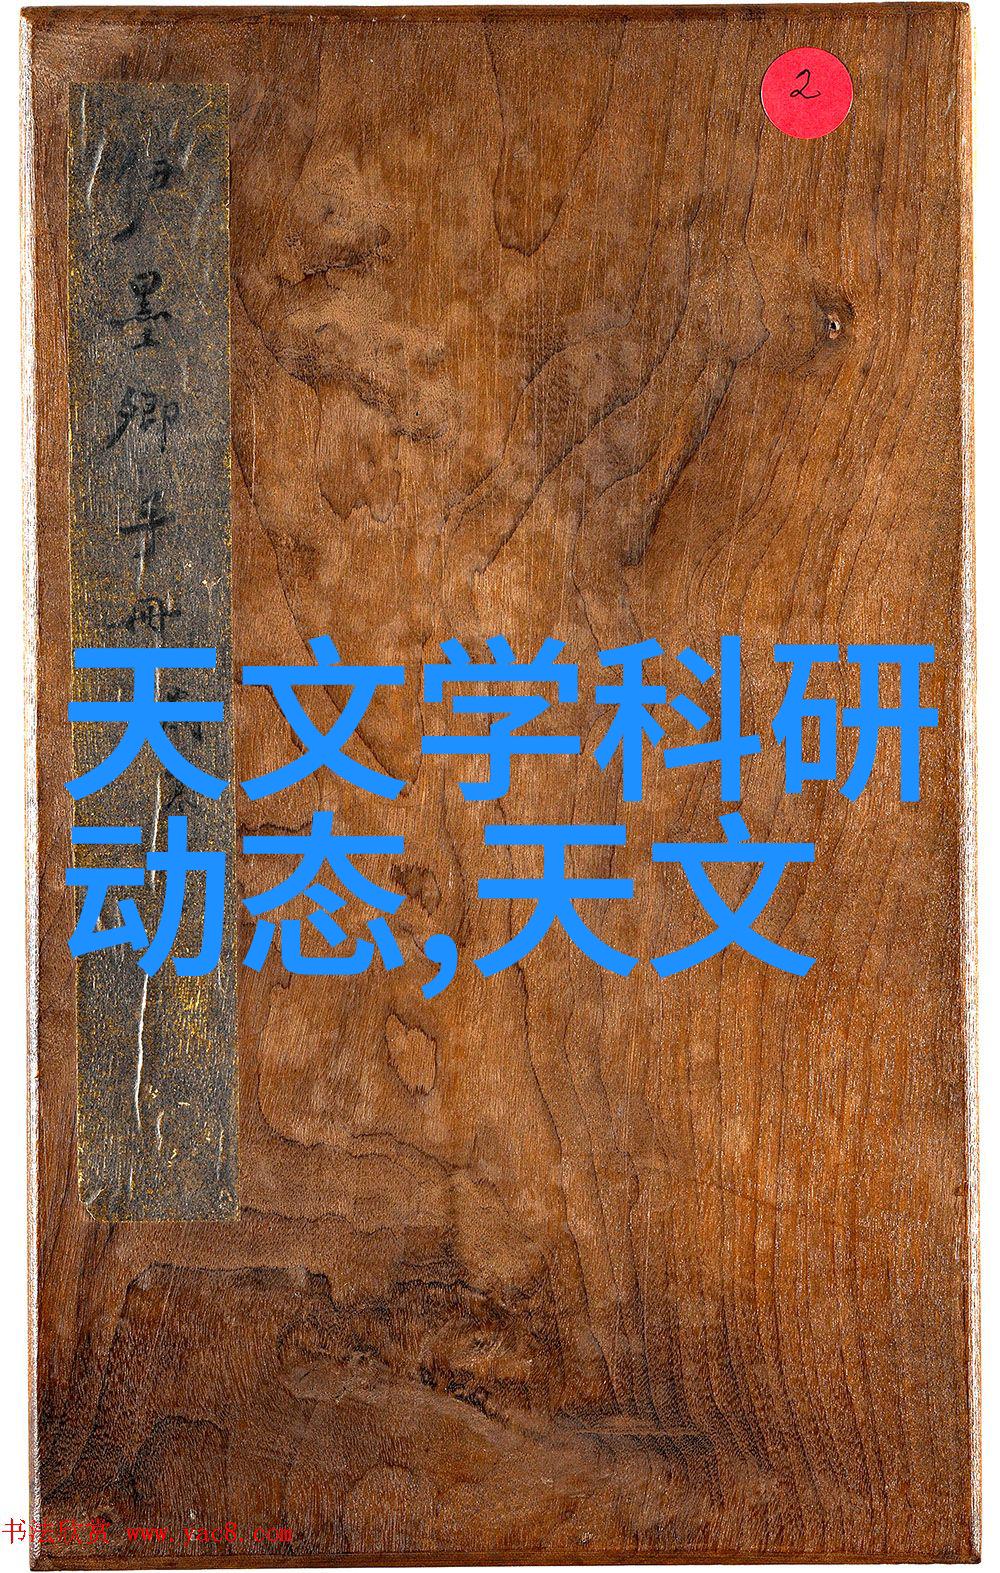 2
墨卿手冊
天文学科研
动态,天文
书法欣赏 www.yac8.com